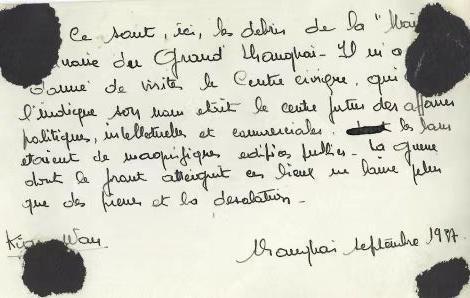 Ce sont, ici, les debris de la "Mai
naire du Grand Shanghai - Il m'a
donné de visiter le Centre civique, qui
l'indique son nom etait le centre futur des affaires
politiques, intellectuelles et commerciales. les
etaient de magnifiques edifices publics - La guerre
dont le front atteignit ces lieux ne laisse plus
que des pierres et la desolation -
Kiang Wan
Shanghai septembre 1937